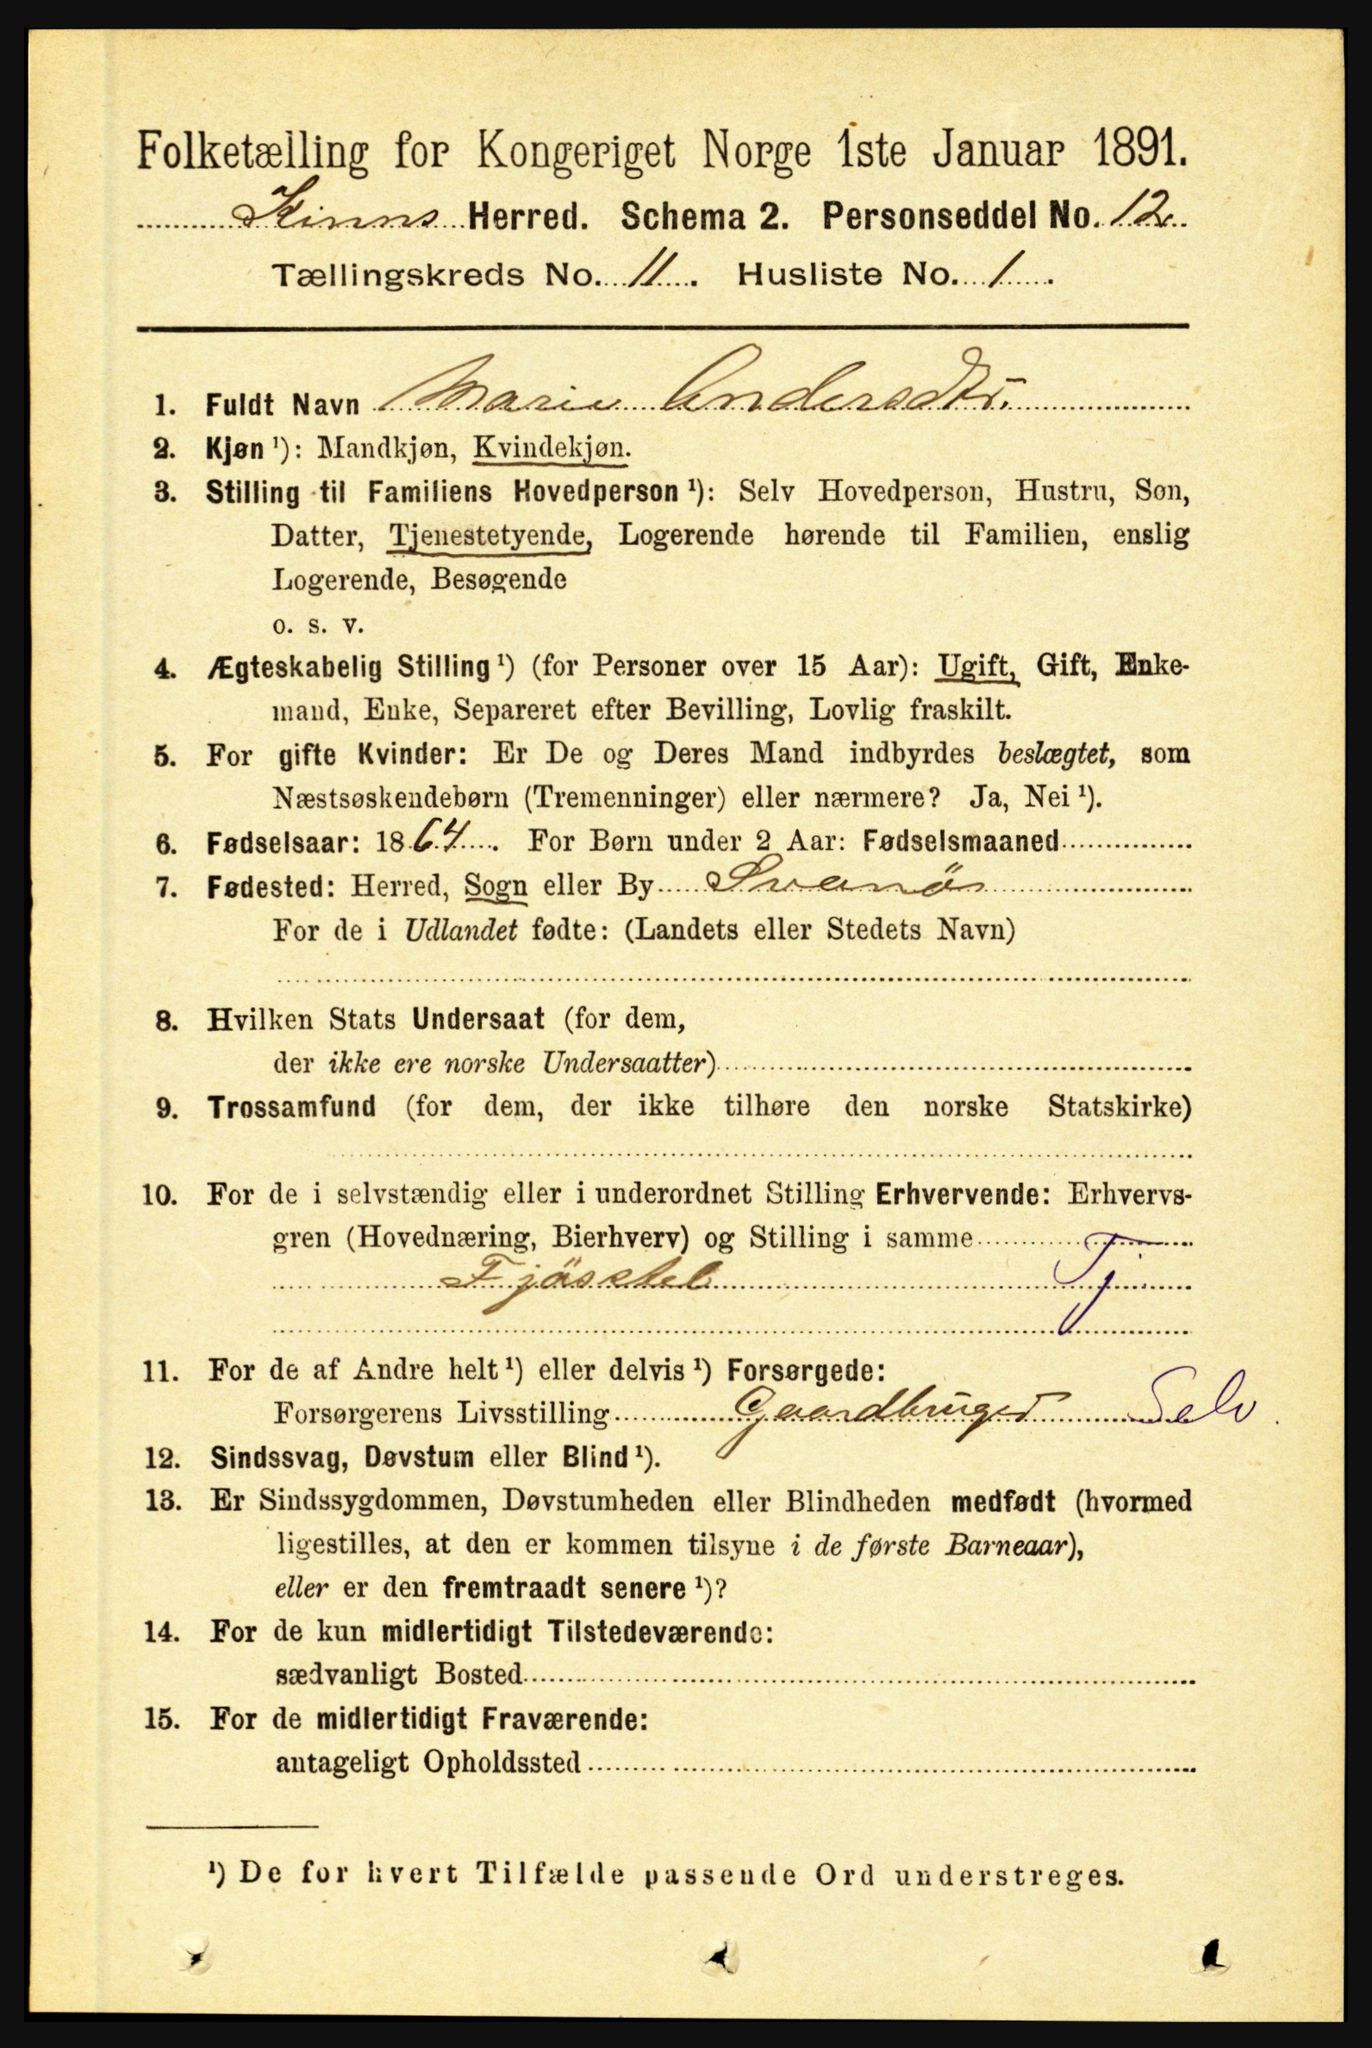 Folketælling for Kongeriget Norge 1ste Januar 1891.
Kinns Herred. Schema 2. Personseddel No. 12
Tællingskreds No. 11. Husliste No. 1
1. Fuldt Navn Marie Andersdtr.
2. Kjøn ¹): Mandkjøn, Kvindekjøn.
3. Stilling til Familiens Hovedperson ¹): Selv Hovedperson, Hustru, Søn,
Datter, Tjenestetyende, Logerende hørende til Familien, enslig
Logerende, Besøgende
o. s. v.
4. Ægteskabelig Stilling ¹) (for Personer over 15 Aar): Ugift, Gift, Enke-
mand, Enke, Separeret efter Bevilling, Lovlig fraskilt.
5. For gifte Kvinder: Er De og Deres Mand indbyrdes beslægtet, som
Næstsøskendebørn (Tremenninger) eller nærmere? Ja, Nei ¹).
6. Fødselsaar: 1864. For Børn under 2 Aar: Fødselsmaaned
7. Fødested: Herred, Sogn eller By Svanö
For de i Udlandet fødte: (Landets eller Stedets Navn)
8. Hvilken Stats Undersaat (for dem,
der ikke ere norske Undersaatter)
9. Trossamfund (for dem, der ikke tilhøre den norske Statskirke)
10. For de i selvstændig eller i underordnet Stilling Erhvervende: Erhvervs-
gren (Hovednæring, Bierhverv) og Stilling i samme
Fjösstel Tj
11. For de af Andre helt ¹) eller delvis ¹) Forsørgede:
Forsørgerens Livsstilling Gaardbruger Selv.
12. Sindssvag, Døvstum eller Blind ¹).
13. Er Sindssygdommen, Døvstumheden eller Blindheden medfødt (hvormed
ligestilles, at den er kommen tilsyne i de første Barneaar),
eller er den fremtraadt senere ¹)?
14. For de kun midlertidigt Tilstedeværende:
sædvanligt Bosted
15. For de midlertidigt Fraværende:
antageligt Opholdssted
¹) De for hvert Tilfælde passende Ord understreges.